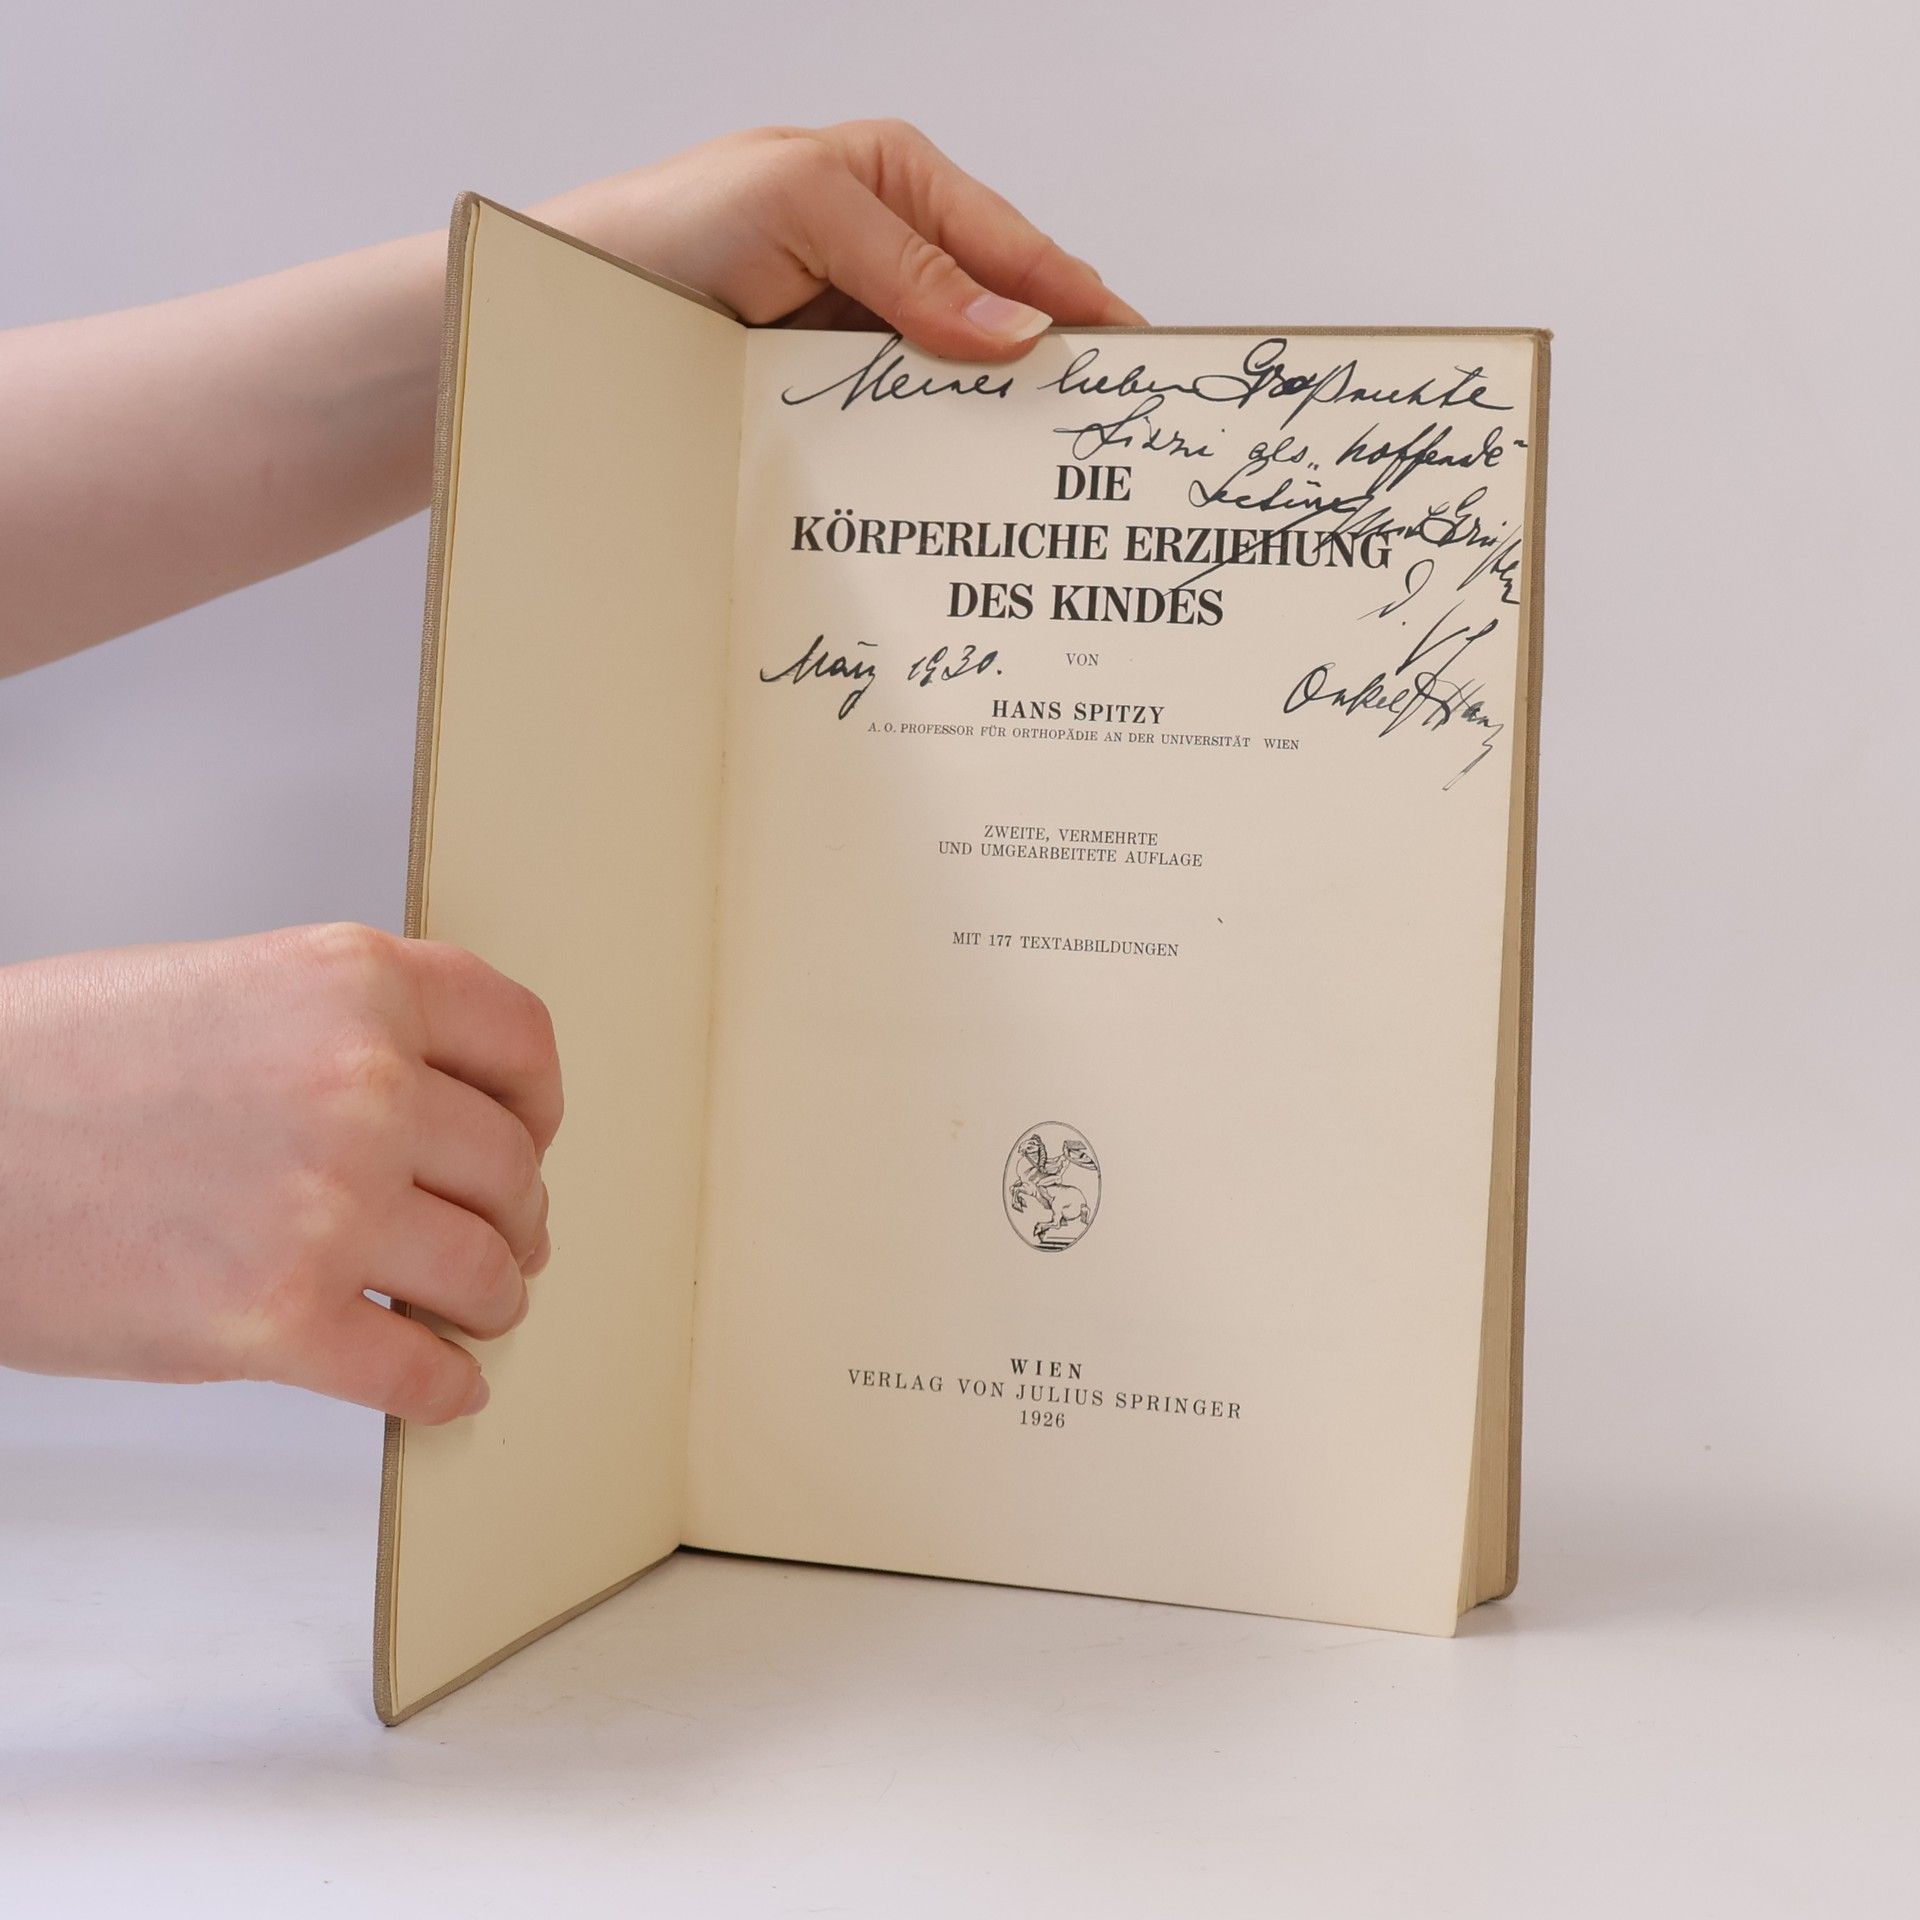 Meiner lieben Großnichte
Lizzi als „hoffende"
Lectüre mit Grüßen
DIE
KÖRPERLICHE ERZIEHUNG
DES KINDES
März 1930.
VON
Onkel Hans
HANS SPITZY
A. O. PROFESSOR FÜR ORTHOPÄDIE AN DER UNIVERSITÄT WIEN
ZWEITE, VERMEHRTE
UND UMGEARBEITETE AUFLAGE
MIT 177 TEXTABBILDUNGEN
WIEN
VERLAG VON JULIUS SPRINGER
1926